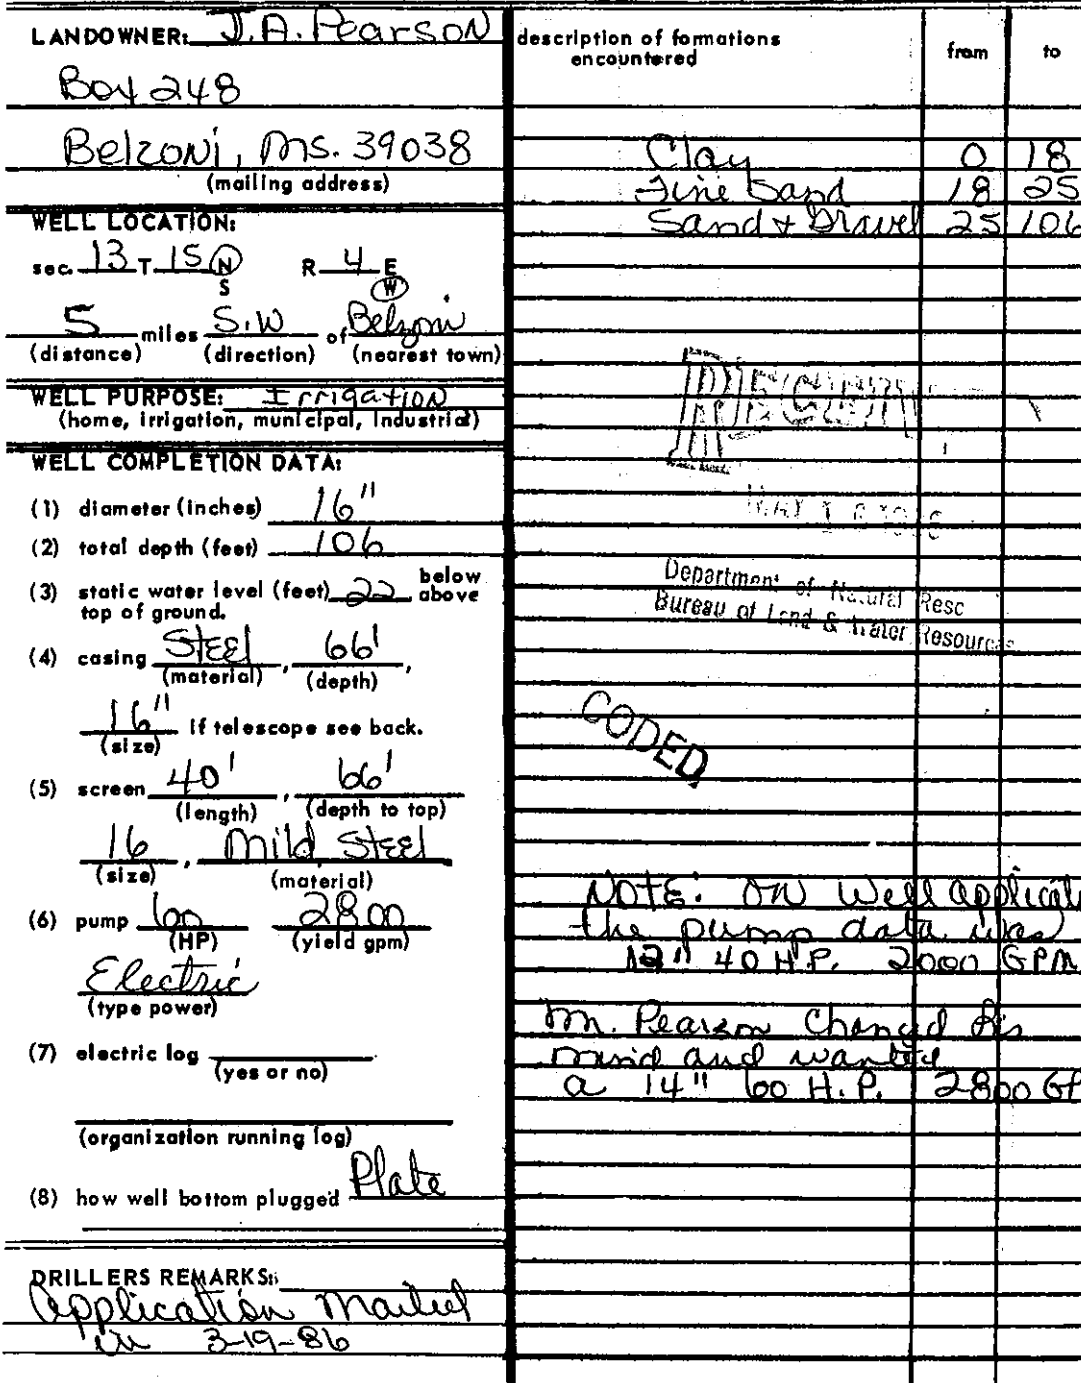 LANDOWNER: J.A. Pearson
Box 248
Belzoni, Ms. 39038
(mailing address)
WELL LOCATION:
sec. 13 T 15 N R 4 E
S W
5 miles S.W of Belzoni
(distance) (direction) (nearest town)
WELL PURPOSE: Irrigation
(home, irrigation, municipal, Industrial)
WELL COMPLETION DATA:
(1) diameter (inches) 16"
(2) total depth (feet) 106
(3) static water level (feet) 22 below
above
top of ground.
(4) casing Steel, 66',
(material) (depth)
16" If telescope see back.
(size)
(5) screen 40', 66'
(length) (depth to top)
16, Mild Steel
(size) (material)
(6) pump 60 2800
(HP) (yield gpm)
Electric
(type power)
(7) electric log
(yes or no)
(organization running log)
(8) how well bottom plugged Plate
DRILLERS REMARKS:
Application Mailed
in 3-19-86
description of formations from to
encountered
Clay 0 18
Fine Sand 18 25
Sand + Gravel 25 106
MAY 1
Department of Natural Resc
Bureau of Land & Water Resources
CODED
NOTE: ON Well applicati
the pump data was
12" 40 H.P. 2000 GPM
Mr. Pearson Changed his
mind and wanted
a 14" 60 H.P. 2800 GP